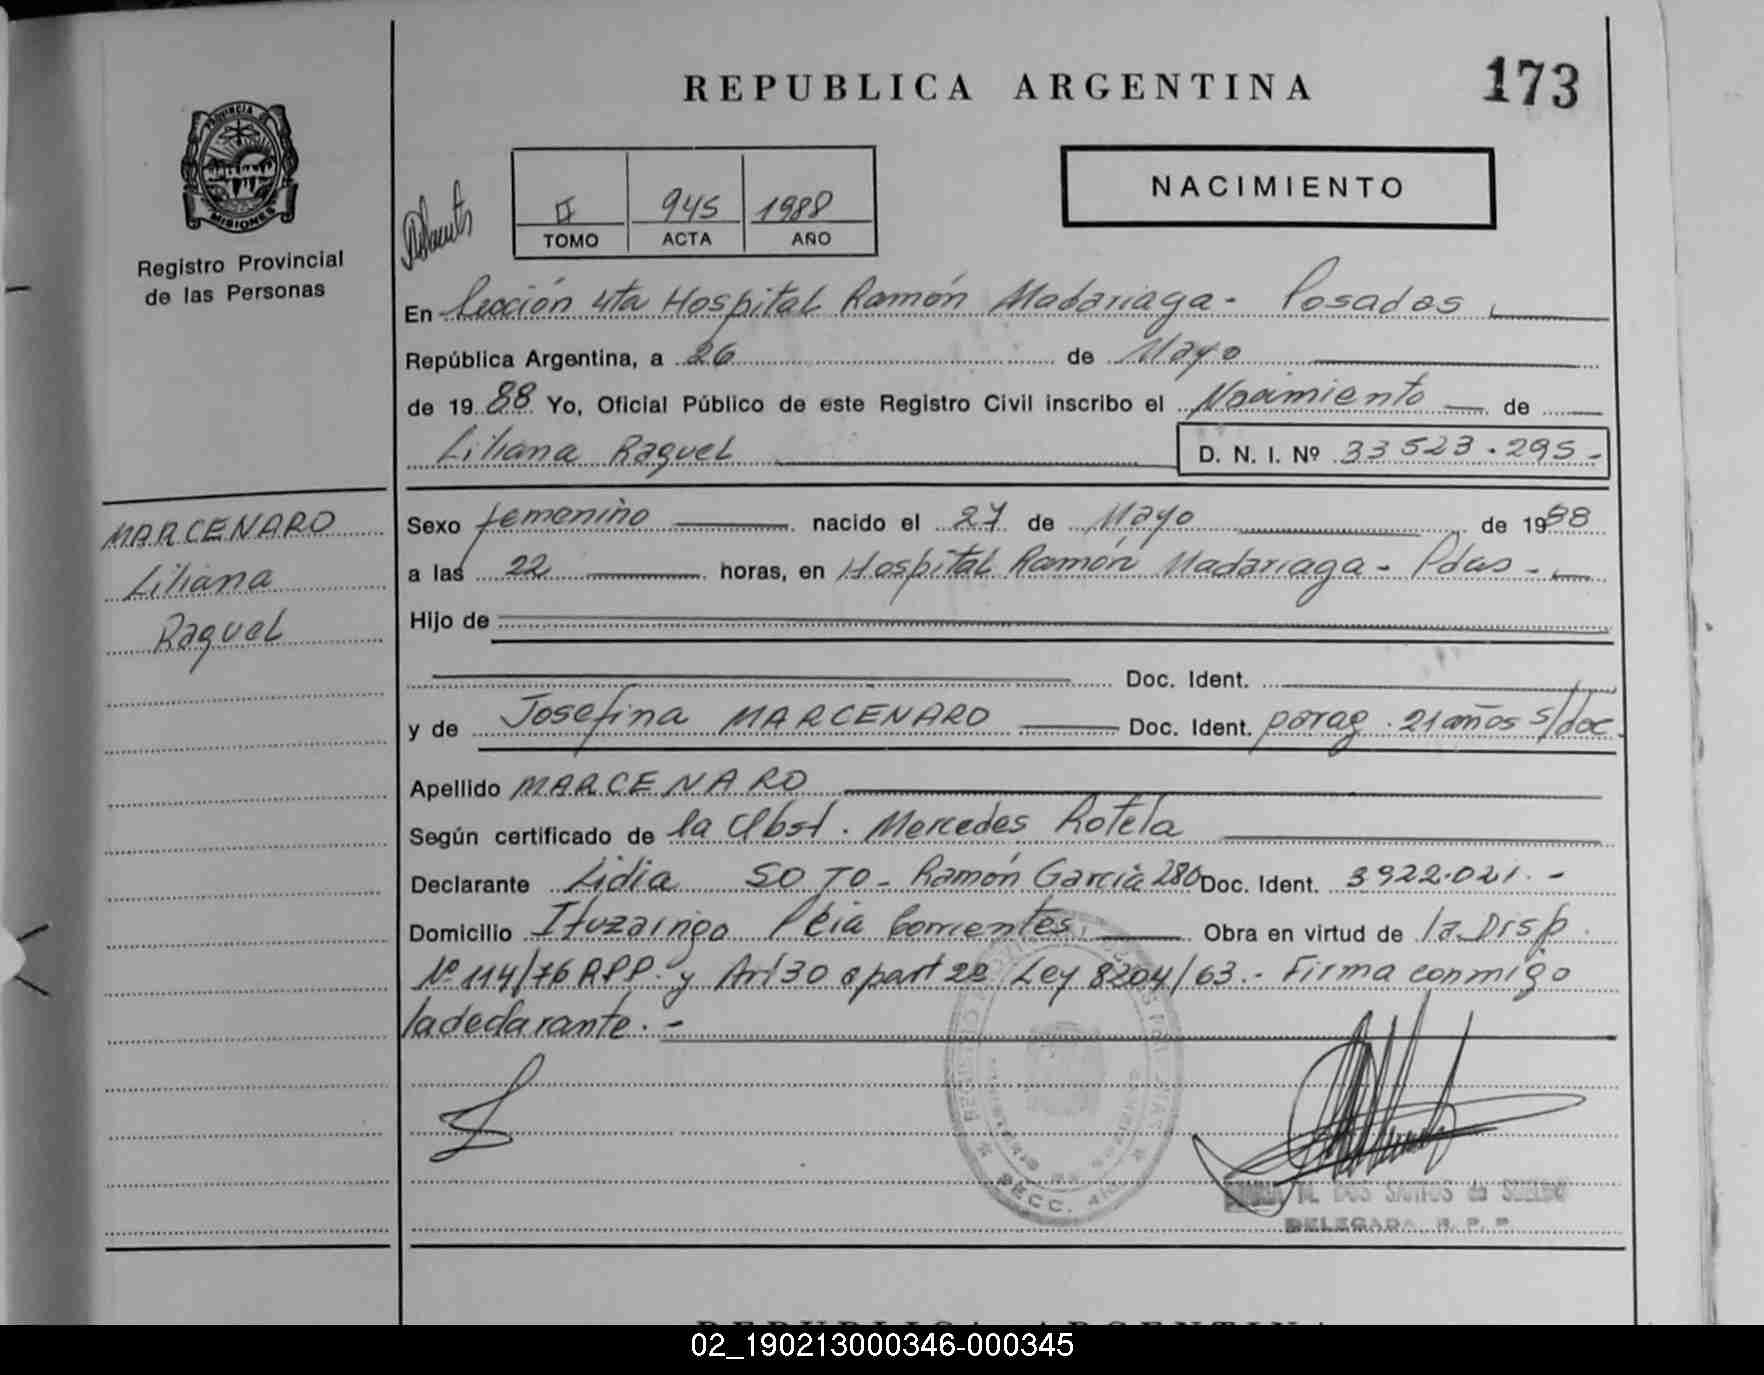 REPUBLICA ARGENTINA
173
PROVINCIA DE
MISIONES
Registro Provincial
de las Personas
II 945 1988
TOMO ACTA AÑO
NACIMIENTO
En Sección 4ta Hospital Ramón Madariaga - Posadas
República Argentina, a 26 de Mayo
de 1988 Yo, Oficial Público de este Registro Civil inscribo el Nacimiento de
Liliana Raquel
D. N. I. Nº 33523.295-
MARCENARO
Liliana
Raquel
Sexo femenino nacido el 27 de Mayo de 1988
a las 22 horas, en Hospital Ramón Madariaga - Pdas -
Hijo de
Doc. Ident.
y de Josefina MARCENARO Doc. Ident. parag. 21 años s/doc.
Apellido MARCENARO
Según certificado de la Obst. Mercedes Rotela
Declarante Lidia SOTO - Ramón Garcia 280 Doc. Ident. 3922.021.-
Domicilio Ituzaingo Pcia Corrientes Obra en virtud de la Disp.
Nº 114/76 RPP. y Art 30 apart 2º Ley 8204/63.- Firma conmigo
la declarante.-
SECC. 4ta
M. DOS SANTOS de
DELEGADA R. P. P.
REPUBLICA ARGENTINA
02_190213000346-000345